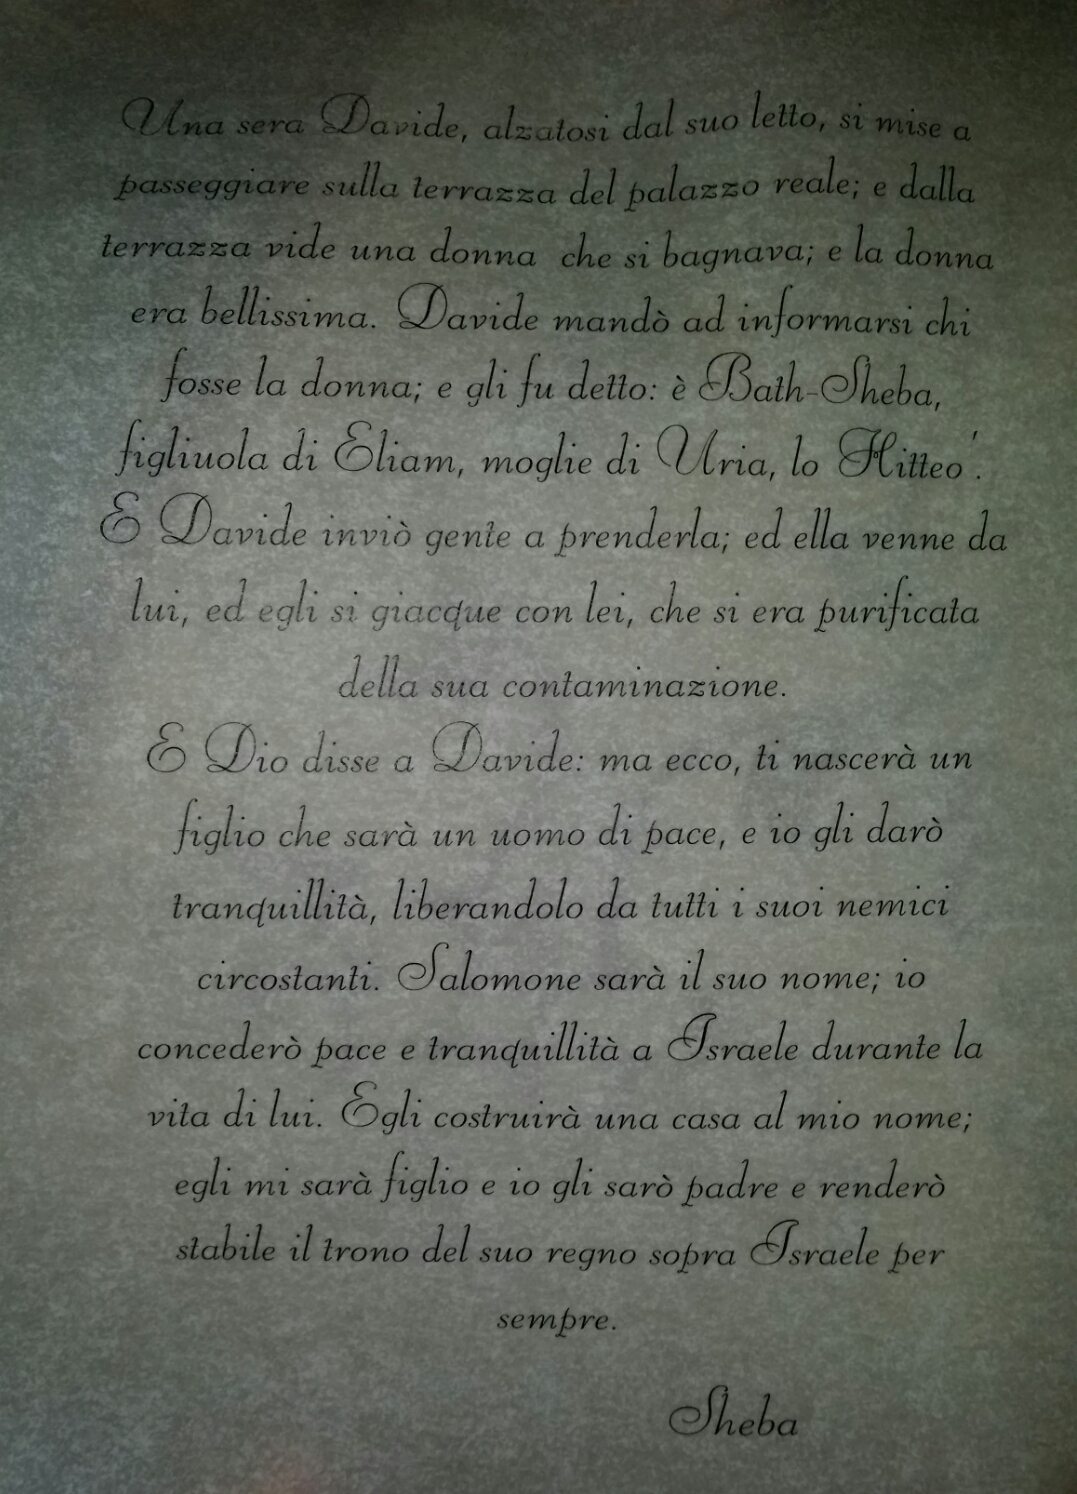 Una sera Davide, alzatosi dal suo letto, si mise a
passeggiare sulla terrazza del palazzo reale; e dalla
terrazza vide una donna che si bagnava; e la donna
era bellissima. Davide mandò ad informarsi chi
fosse la donna; e gli fu detto: è Bath-Sheba,
figliuola di Eliam, moglie di Uria, lo Hitteo'.
E Davide inviò gente a prenderla; ed ella venne da
lui, ed egli si giacque con lei, che si era purificata
della sua contaminazione.
E Dio disse a Davide: ma ecco, ti nascerà un
figlio che sarà un uomo di pace, e io gli darò
tranquillità, liberandolo da tutti i suoi nemici
circostanti. Salomone sarà il suo nome; io
concederò pace e tranquillità a Israele durante la
vita di lui. Egli costruirà una casa al mio nome;
egli mi sarà figlio e io gli sarò padre e renderò
stabile il trono del suo regno sopra Israele per
sempre.
Sheba